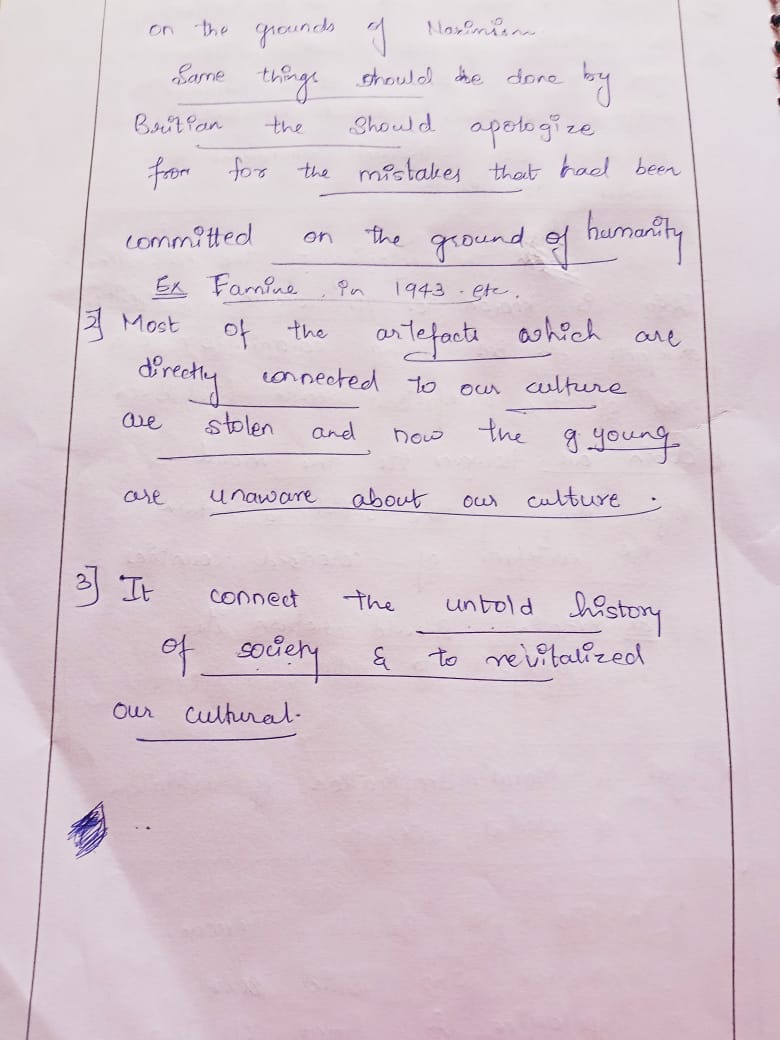 on the grounds of Naximism
Same things should be done by
Britian the Should apologize
from for the mistakes that had been
committed on the ground of humanity
Ex Famine in 1943 . etc.
2] Most of the artefacts which are
directly connected to our culture
are stolen and now the g young
are unaware about our culture .
3] It connect the untold history
of society & to revitalized
our cultural.